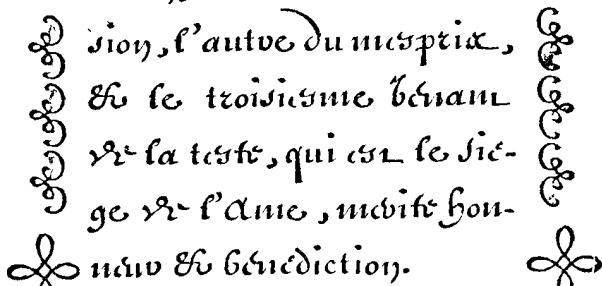 sion, l'autre du mespris,
& le troisiesme venant
de la teste, qui est le sie-
ge de l'Ame, merite hon-
neur & benediction.